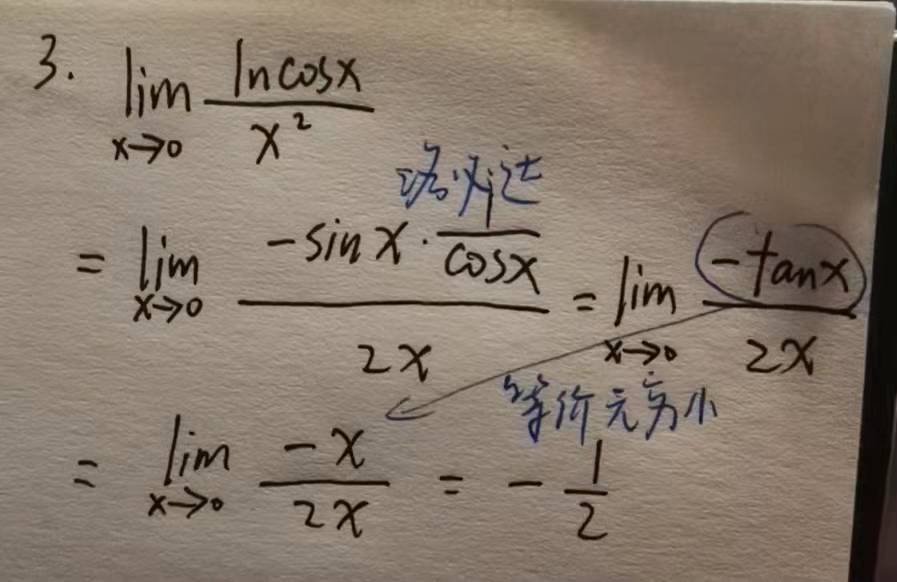 3. lim x→0 lncosx / x²
洛必达
= lim x→0 (-sinx · 1/cosx) / 2x = lim x→0 -tanx / 2x
等价无穷小
= lim x→0 -x / 2x = -1/2